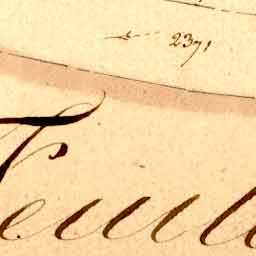 2371
Feuil